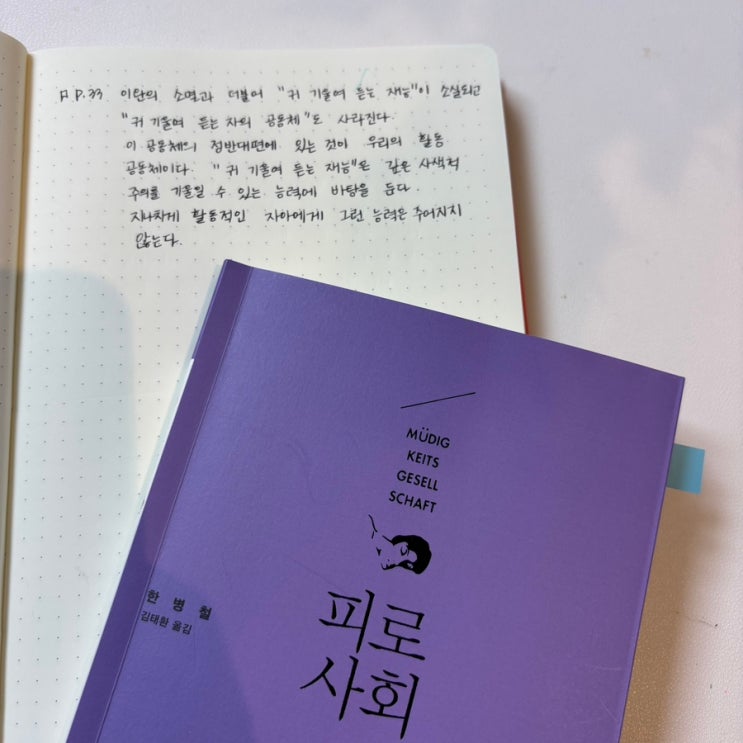 P.33 이완의 소멸과 더불어 "귀 기울여 듣는 재능"이 소실되고
"귀 기울여 듣는 자의 공동체"도 사라진다.
이 공동체의 정반대편에 있는 것이 우리의 활동
공동체이다. "귀 기울여 듣는 재능"은 깊은 사색적
주의를 기울일 수 있는 능력에 바탕을 둔다
지나치게 활동적인 자아에게 그런 능력은 주어지지
않는다.
MÜDIG
KEITS
GESELL
SCHAFT
한병철
김태환 옮김
피로
사회